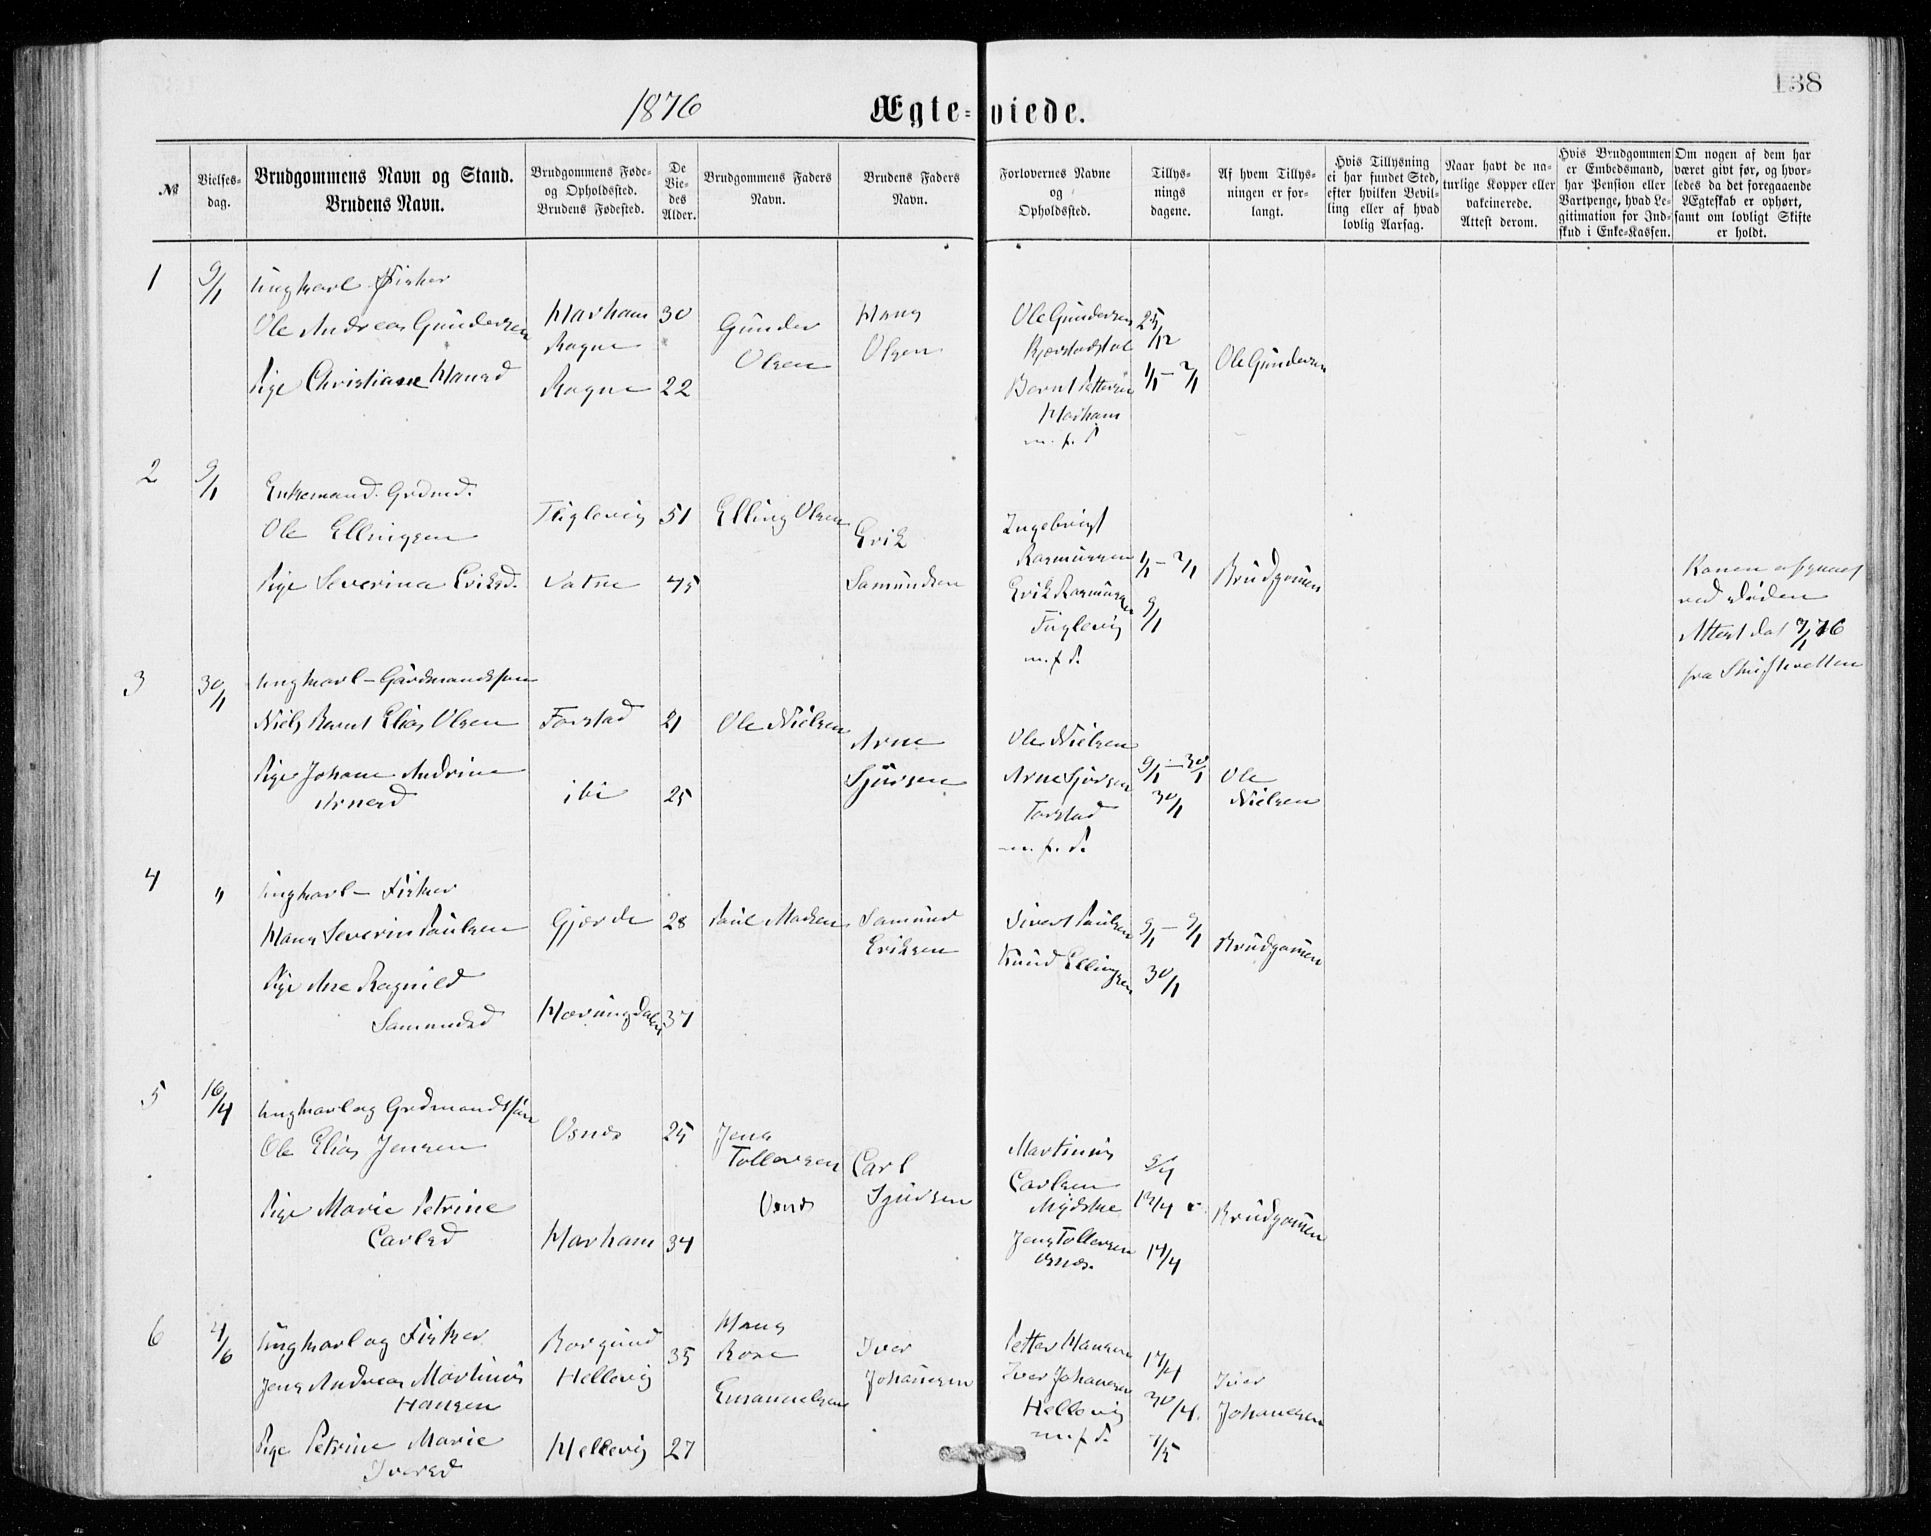 138
1876 Ægte-viede.
№
Vielses-
dag.
Brudgommens Navn og Stand.
Brudens Navn.
Brudgommens Føde-
og Opholdssted.
Brudens Fødested.
De
Vie-
des
Alder.
Brudgommens Faders
Navn.
Brudens Faders
Navn.
Forlovernes Navne
og
Opholdssted.
Tillys-
nings
dagene.
Af hvem Tillys-
ningen er for-
langt.
Hvis Tillysning
ei har fundet Sted,
efter hvilken Bevil-
ling eller af hvad
lovlig Aarsag.
Naar havt de na-
turlige Kopper eller
vakcinerede.
Attest derom.
Hvis Brudgommen
er Embedsmand,
har Pension eller
Vartpenge, hvad Le-
gitimation for Ind-
skud i Enke-Kassen.
Om nogen af dem har
været givt før, og hvor-
ledes da det foregaaende
Ægteskab er ophørt,
samt om lovligt Skifte
er holdt.
1 9/1
Ungkarl Fisker
Ole Andreas Gundersen
Pige Christiane Hansd
Harham
Rogne
Rogne
30
22
Gunder
Olsen
Hans
Olsen
Ole Gundersen
Bernt Pettersen
Harham
m. f. d
25/12
1/1 - 2/1
Ole Gundersen
2 9/1
Enkemand. Grdmd.
Ole Ellingsen
Pige Severina Eriksd.
Fuglevig
Vatne
51
45
Elling Olsen
Erik
Samundsen
Ingebrigt
Rasmussen
Erik Rasmussen
Fuglevig
m. f. d.
1/1 - 2/1
9/1
Brudgomen
Konen
ved Døden
Attest dat 7/1 76
fra Skifteretten
3 30/1
Ungkarl - Gårdmandssøn
Niels Bernt Elias Olsen
Pige Johane Andrine
Arnesd
Farstad
ibi
21
25
Ole Nielsen
Arne
Sjursen
Ole Nielsen
Arne Sjursen
Farstad
m. f. d.
9/1 - 30/1
30/1
Ole
Nielsen
4 "
Ungkarl - Fisker
Hans Severin Paulsen
Pige Ane Ragnild
Samundsd
Gjærde
28
37
Paul Madsen
Samund
Eriksen
Sivert Paulsen
Knud Ellingsen
9/1 - 9/1
30/1
Brudgomen
5 16/4
Ungkarl og Grdmandssøn
Ole Elias Jensen
Pige Marie Petrine
Carlsd
Vsnes
Harham
25
34
Jens
Tollevsen
Vsnes
Carl
Sjursen
Martinus
Carlsen
Jens Tollevsen
Vsnes.
9/4
13/4
14/4
Brudgomen
6 4/6
Ungkarl og Fisker
Jens Andreas Martinus
Hansen
Pige Petrine Marie
Iversd
Borgund
Hellevig
Hellevig
35
27
Hans
Rose
Emanuelsen
Iver
Johansen
Petter Hansen
Iver Johansen
Hellevig
m. f. d.
17/4
30/4.
7/5
Iver
Johansen